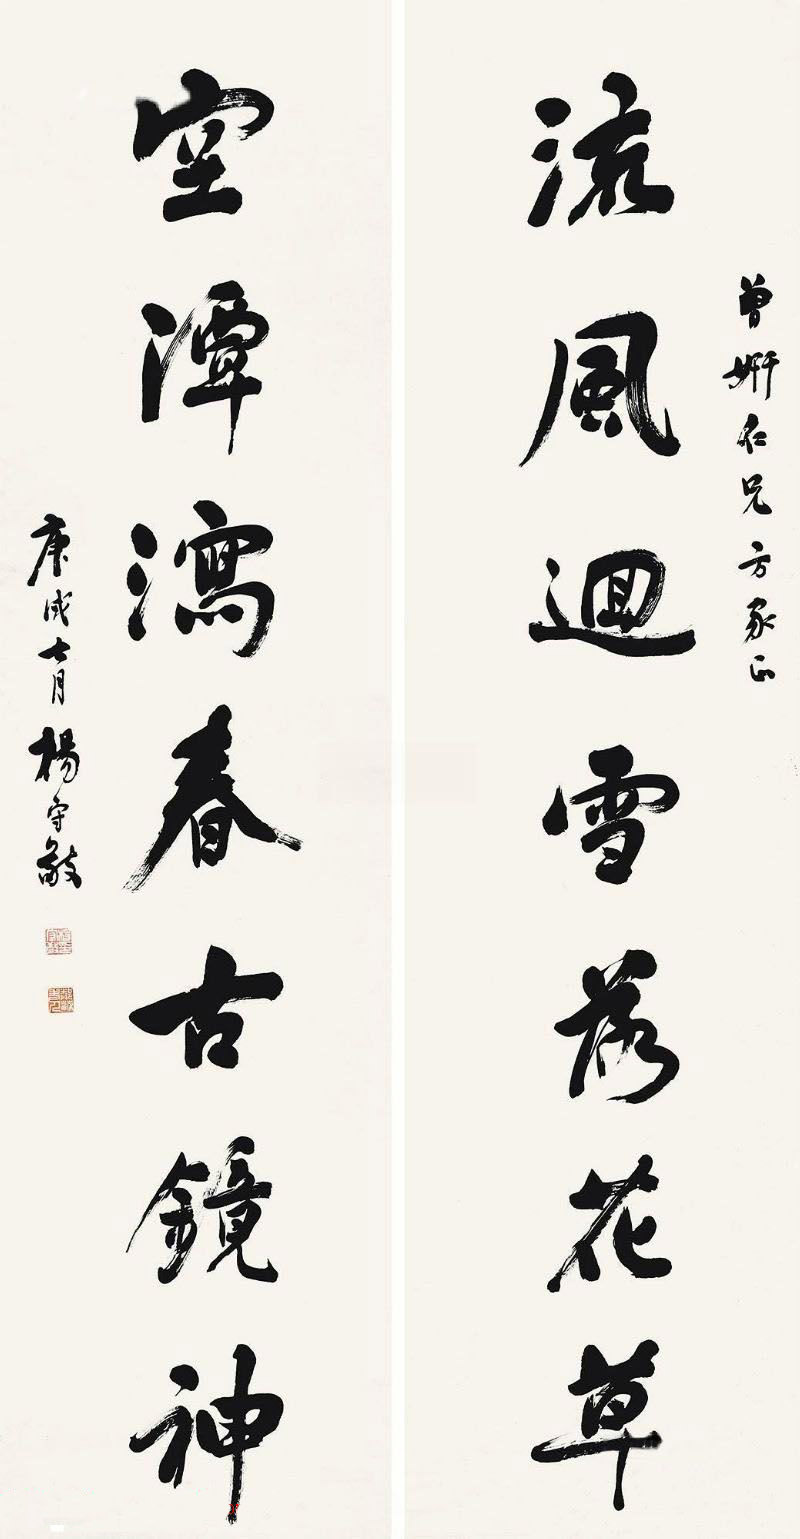 曾妍仁兄方家正
流風迴雪落花草
空潭瀉春古鏡神
庚戌七月楊守敬